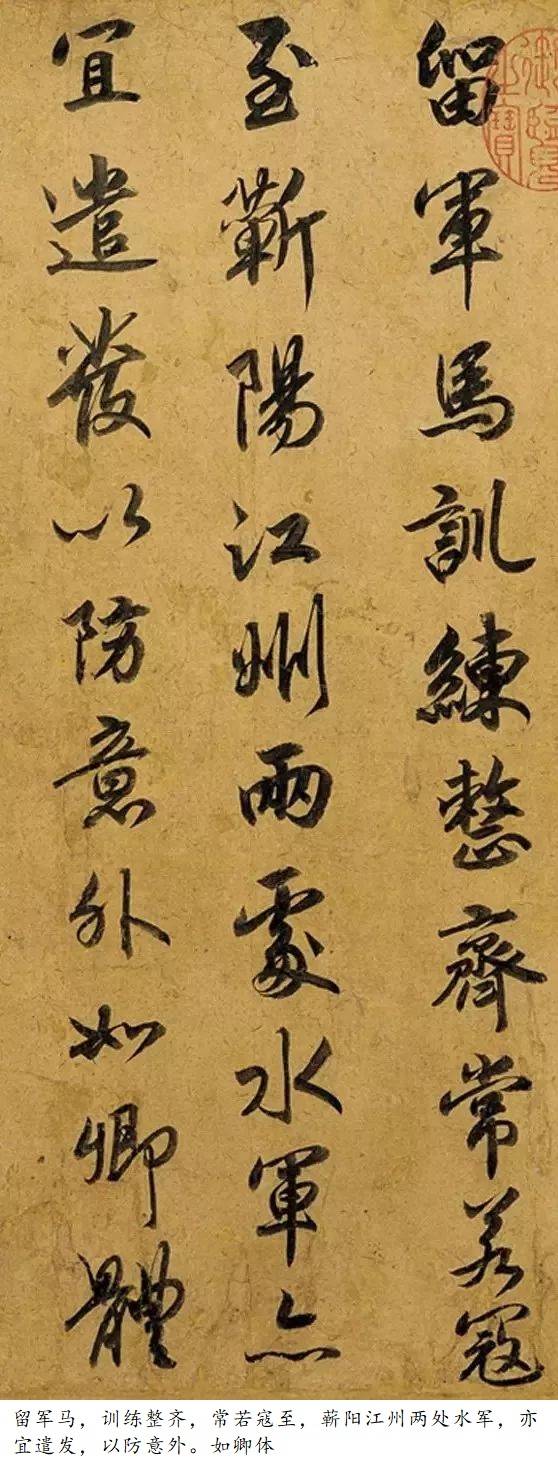 留軍馬訓練整齊常若寇
至蘄陽江州兩處水軍亦
宜遣發以防意外如卿體
留军马，训练整齐，常若寇至，蕲阳江州两处水军，亦
宜遣发，以防意外。如卿体